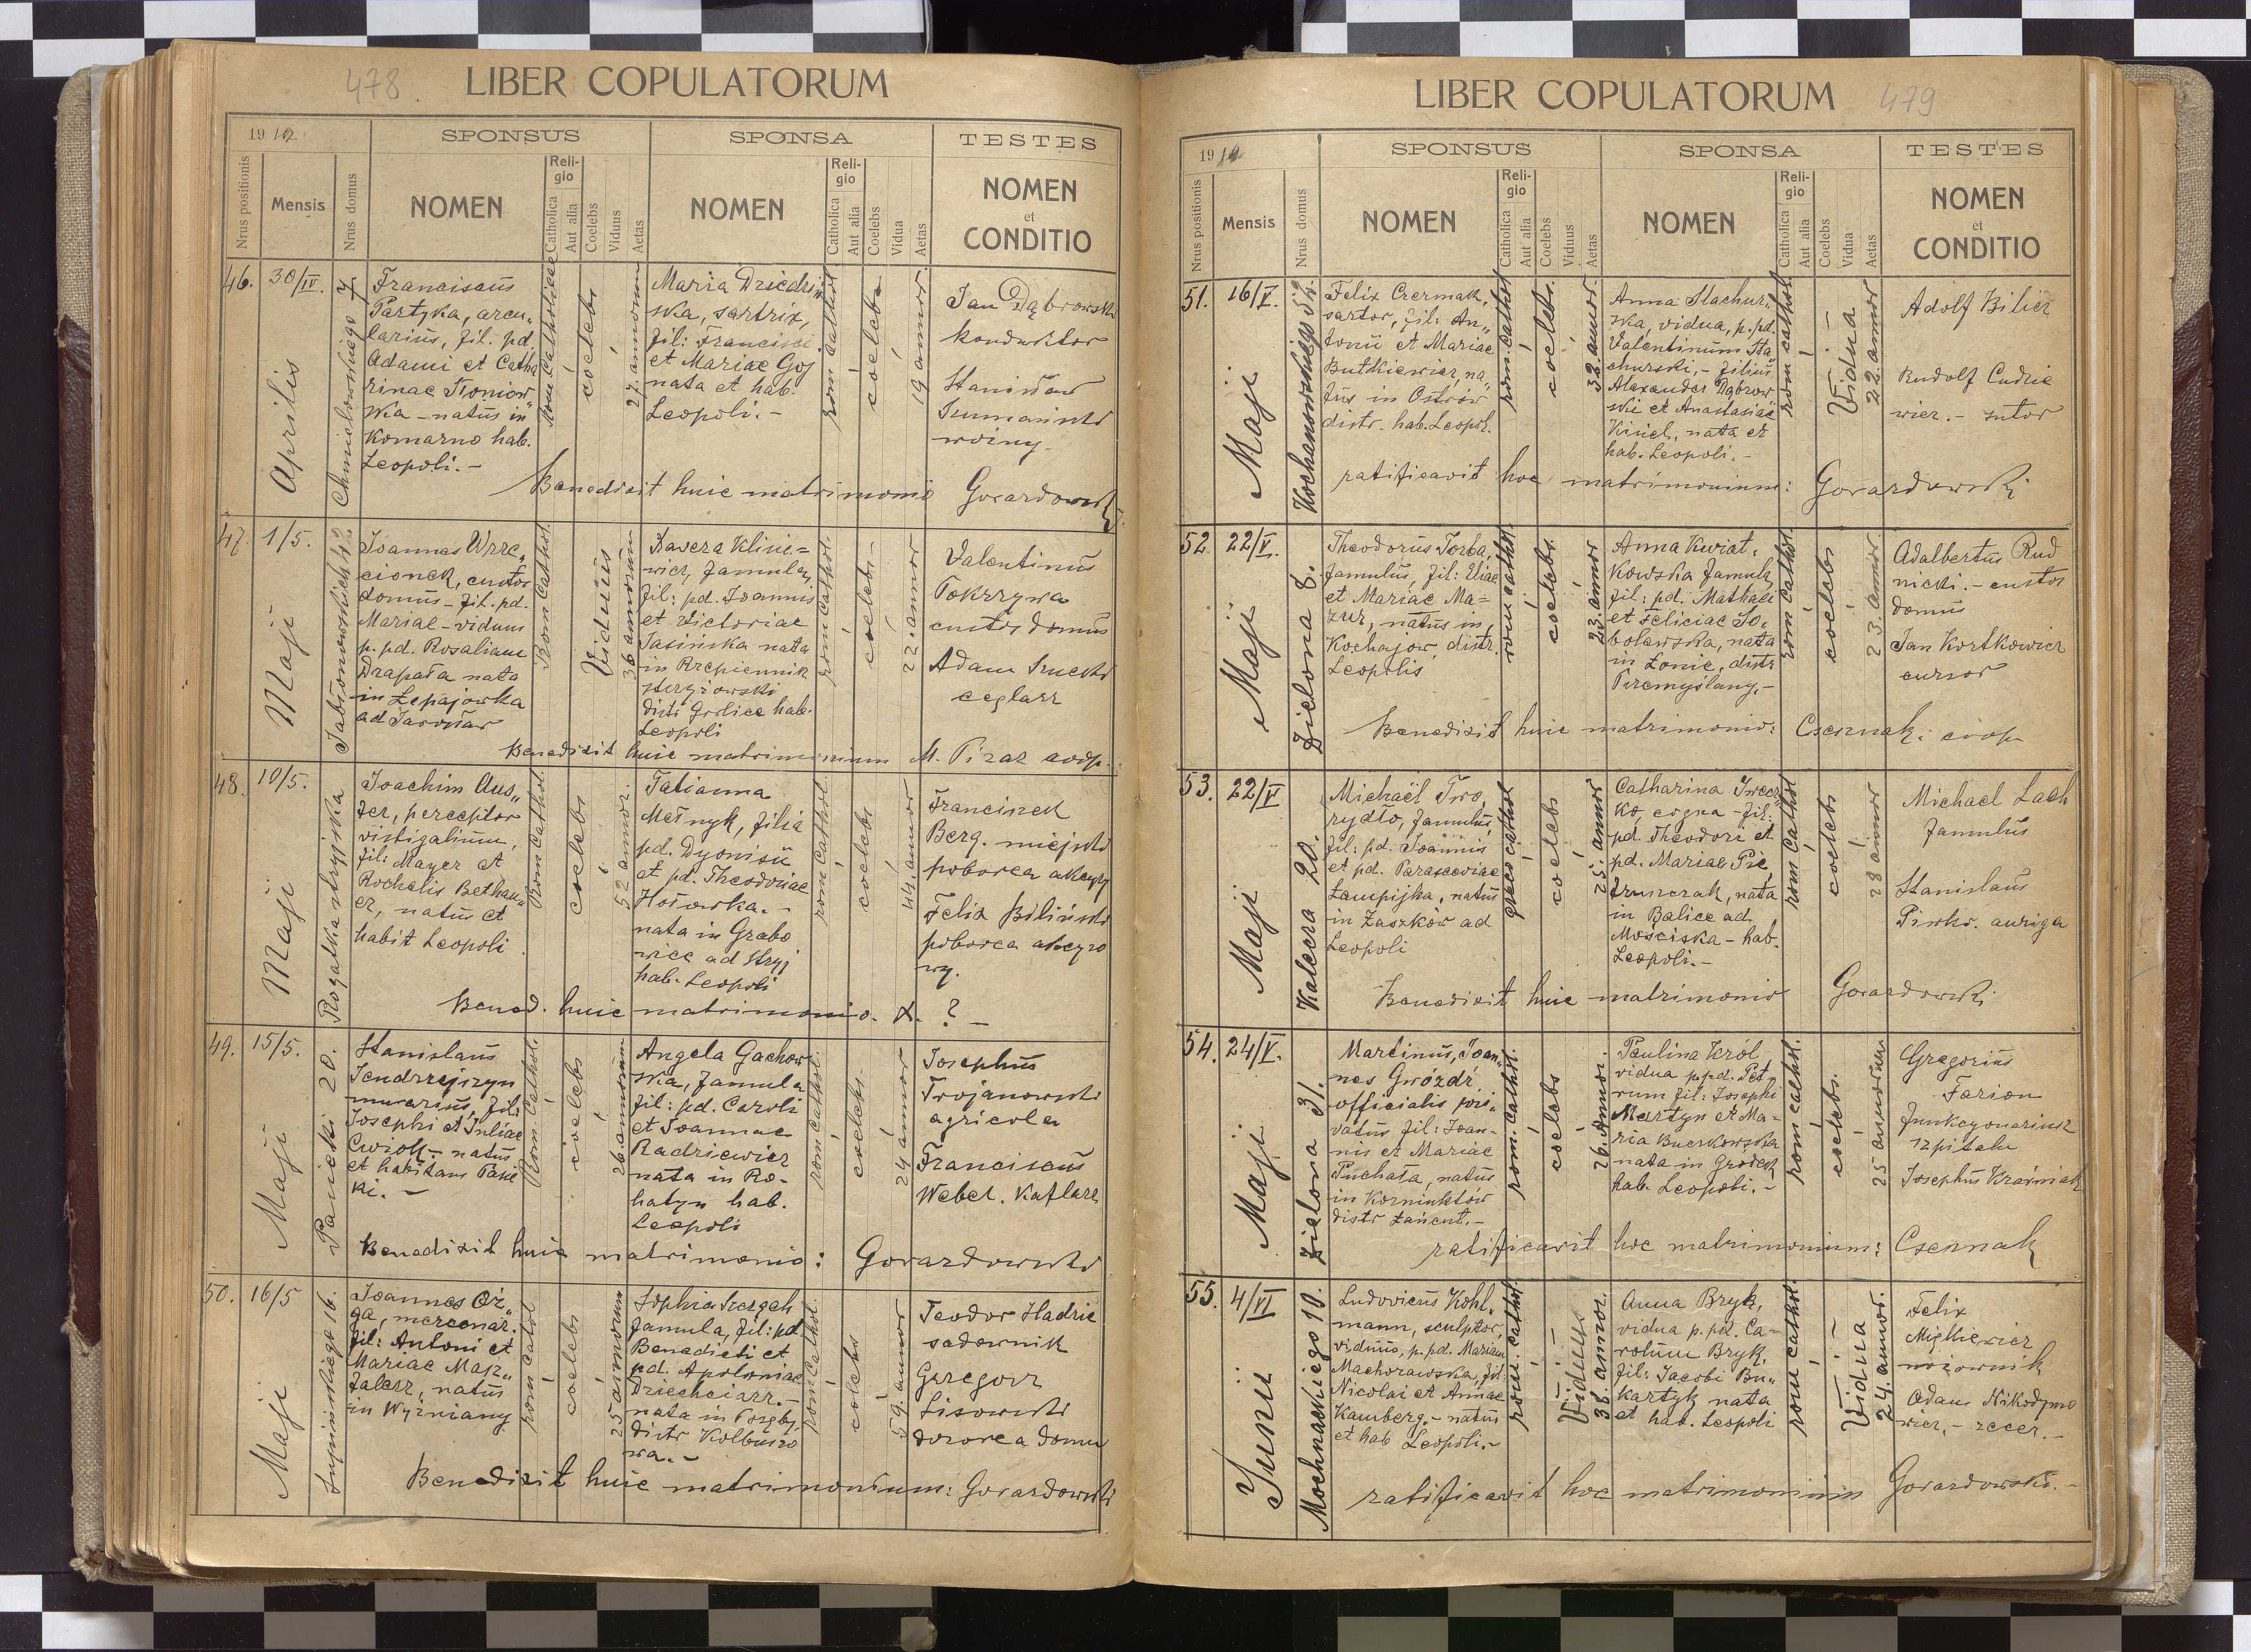 478
LIBER COPULATORUM
19
SPONSUS
SPONSA
TESTES
Nrus positionis
Mensis
Nrus domus
NOMEN
Religio
Catholica
Aut alia
Coelebs
Viduus
Aetas
NOMEN
Religio
Catholica
Aut alia
Coelebs
Vidua
Aetas
NOMEN
et
CONDITIO
46.
30/IV.
Aprilis
Franciscus
Partyka, arcu„
larius, fil. pd.
Adami et Catha
rinae
natus in
Komarno hab.
Leopoli.-
Rom Catholicae
coelebs
27. annorum
Maria Dziedzi„
ska, sartrix,
fil: Francisci
et Mariae Goj
nata et hab.
Leopoli.-
rom cathol.
coelebs
19 annor.
Jan Dąbrowski
konduktor
Stanisław
woźny
Benedixit huic matrimonio Gorazdowski
47.
1/5.
Maji
Jabłonowskich 42
Joannes Wrze„
cionek, custos
domus - fil. pd.
Mariae - viduus
p. pd. Rosaliam
Drapała nata
in Łepajowka
ad Jarosłav
Rom Cathol.
Viduus
36 annorum
Xavera Klisie=
wicz, famula,
fil: pd. Joannis
et Victoriae
Jasińska nata
in Rzepiennik
strzyżowski
distr Gorlice hab.
Leopoli
rom cathol.
coelebs -
22. annor
Valentinus
Pokrzywa
custos domus
Adam
ceglarz
Benedixit huic matrimonium M. Piraz coop.
48.
10/5.
Maji
Rogatka stryjska
Joachim Aus„
zer, perceptor
vistigalium,
fil: Mayer et
Rochelis Bethau„
er, natus et
habit Leopoli
Rom Cathol.
coelebs
52 annor.
Tatianna
Melnyk, filia
pd. Dyonisii
et pd. Theodoriae
Hołowka.-
nata in Grabo
wice ad Stryj
hab. Leopoli
rom Cathol.
coelebs
44. annor
Franciszek
Berg. miejski
poborca akcyzy
Felix Biliński
poborca akcyzo
wy.
Bened. huic matrimonio. X. ? -
49.
15/5.
Maji
Pasieki 20.
Stanislaus
Jendrzejszyn
murarius, fil:
Josephi et Juliae
Cwiok - natus
et habitans Pasie
ki.-
Rom Cathol.
coelebs
26. annorum
Angela Gachow
ska, famula
fil: pd. Caroli
et Joannae
Radziewicz
nata in Ro-
hatyn hab.
Leopoli
rom Cathol.
coelebs.
24 annor
Josephus
Trojanowski
agricola
Franciscus
Weber. Kaflarz
Benedixit huic matrimonio: Gorazdowski
50.
16/5
Maji
Supinskiego 16.
Joannes Oż„
ga, mercenar.
fil: Antoni et
Mariae Mar„
falerz, natus
in Wyżniany
rom Cathol
coelebs
25 annorum
Sophia Szczęch
famula, fil: pd
Benedicti et
pd. Apoloniae
Dziechciarz.-
nata in
distr Kolbuszo
wa.-
rom Cathol.
coelebs
59. annor
Teodor Hadzie
sadownik
Grzegorz
Lisowski
dozorca domu
Benedixit huic matrimonium: Gorazdowski
LIBER COPULATORUM
479
19
SPONSUS
SPONSA
TESTES
Nrus positionis
Mensis
Nrus domus
NOMEN
Religio
Catholica
Aut alia
Coelebs
Viduus
Aetas
NOMEN
Religio
Catholica
Aut alia
Coelebs
Vidua
Aetas
NOMEN
et
CONDITIO
51.
16/V.
Maji
Kochanowskiego 52.
Felix Czermak,
sartor, fil: An„
tonii et Mariae
Butkiewicz, na„
tus in Ostrów
distr. hab. Leopol.
rom. cathol
coelebs.
32. annor.
Anna Stachur„
ska, vidua, p. pd.
Valentinum Sta„
churski, - filius
Alexander Dąbrow„
ski et Anastasiae
Kisiel, nata et
hab. Leopoli.-
rom cathol.
Vidua -
22. annor
Adolf Bilicz
Rudolf Cudzie
wicz. - sutor
ratificavit hoc matrimonium: Gorazdowski
52
22/V.
Maji
Zielona 8.
Theodorus Torba,
famulus, fil: Eliae
et Mariae Ma=
zur, natus in
Kochajow, distr.
Leopolis
rom cathol.
coelebs.
23. annor
Anna Kwiat„
kowska famula,
fil: pd. Mathaei
et Feliciae So„
bolewska, nata
in Łonie, distr
Przemyślany.-
rom Cathol.
coelebs
23. annor
Adalbertus Rud
nicki. - custos
domus
Jan Kortkowicz
cursor
Benedixit huic matrimonio: Czermak. coop.
53.
22/V
Maji
Kalecza 20.
Michaël Two„
rydło, famulus,
fil: pd. Joannis
et pd. Parascewiae
Łampijka, natus
in Zaszków ad
Leopoli
graeco cathol
coelebs
25. annor
Catharina Iwecz
ko, cogna - fil:
pd. Theodori et
pd. Mariae Pie„
truszczak, nata
in Balice ad
Mościska - hab.
Leopoli.-
rom Cathol
coelebs
28 annor
Michael Lach
famulus
Stanislaus
auriga
Benedixit huic matrimonio Gorazdowski
54.
24/V.
Maji
Zielona 31.
Martinus, Joan„
nes Gwóźdź,
officialis pri„
vatus fil: Joan-
nis et Mariae
Puchała, natus
in Korniaktów
distr Łańcut.-
rom. cathol.
coelebs
26. annor.
Paulina Król
vidua p. pd. Pet„
rum fil: Josephi
Martyn et Ma=
ria Buczkowska
nata in Gródek
hab. Leopoli.-
rom cathol.
coelebs.
25 annorum
Gregorius
Farion
funkcyonariusz
szpitalu
Josephus Kraśniak
ratificavit hoc matrimonium: Czermak
55.
4/VI
Junii
Mochnackiego 10.
Ludovicus Kohl„
mann, sculptor,
viduus, p. pd. Mariam
Machorawska, fil:
Nicolai et Annae
Kamberg. - natus
et hab Leopoli.-
rom. cathol.
Viduus -
38. annor.
Anna Bryk,
vidua p. pd. Ca-
rolum Bryk,
fil: Jacobi Bu„
kartyk nata
et hab. Leopoli
rom cathol.
Vidua -
24. annor.
Felix
Adam Nikodymo
wicz, - zecer.-
ratificavit hoc matrimonium Gorazdowski.-